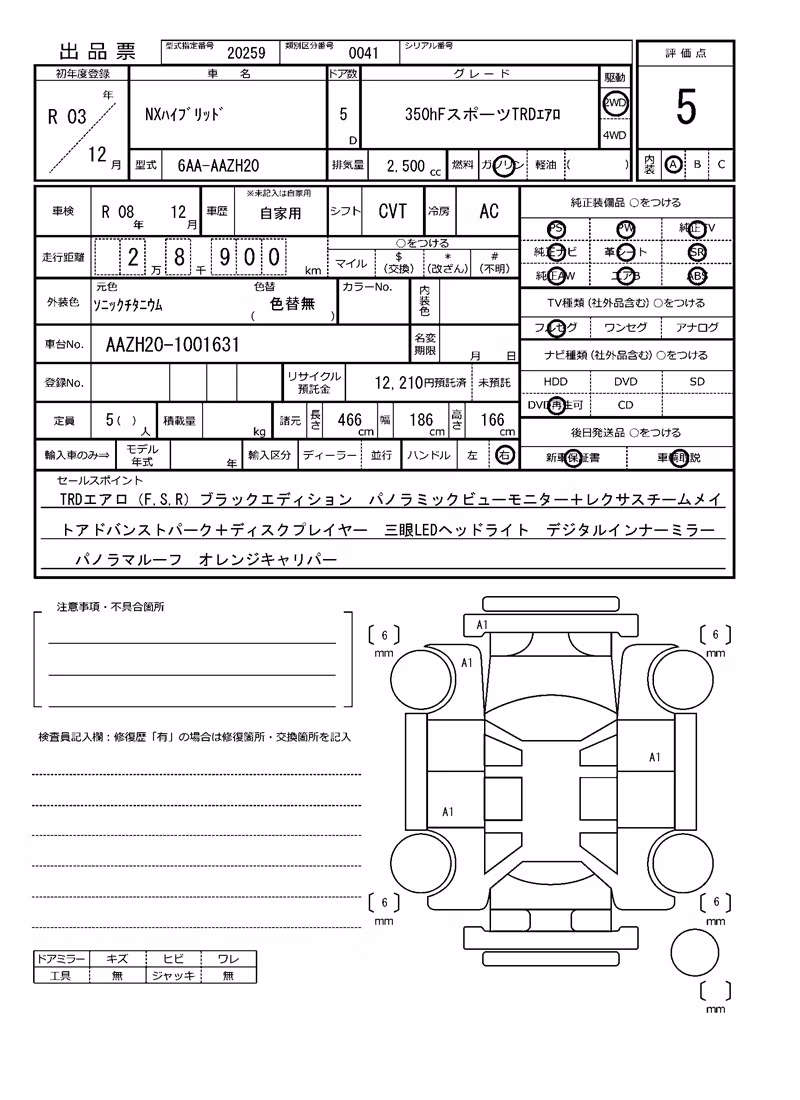 出品票 型式指定番号 20259 類別区分番号 0041 シリアル番号
評価点
5
内装 A B C
初年度登録 車名 ドア数 グレード 駆動
R 03 年 12 月
NXﾊｲﾌﾞﾘｯﾄﾞ 5 D 350hFスポーツTRDｴｱﾛ 2WD
4WD
型式 6AA-AAZH20 排気量 2,500 cc 燃料 ガソリン 軽油 ( )
※未記入は自家用
車検 R 08 年 12 月 車歴 自家用 シフト CVT 冷房 AC
走行距離 2 万 8 千 9 0 0 km
○をつける
マイル $ (交換) * (改ざん) # (不明)
外装色 元色 色替 カラーNo. 内装色
ｿﾆｯｸﾁﾀﾆｳﾑ ( 色替無 )
車台No. AAZH20-1001631 名変期限 月 日
登録No. リサイクル預託金 12,210円預託済 未預託
定員 5( ) 人 積載量 kg 諸元 長さ 466 cm 幅 186 cm 高さ 166 cm
輸入車のみ⇒ モデル年式 年 輸入区分 ディーラー 並行 ハンドル 左 右
純正装備品 ○をつける
PS PW 純正TV
純正ナビ 革シート SR
純正AW エアB ABS
TV種類(社外品含む)○をつける
フルセグ ワンセグ アナログ
ナビ種類(社外品含む)○をつける
HDD DVD SD
DVD再生可 CD
後日発送品 ○をつける
新車保証書 車輌取説
セールスポイント
TRDエアロ(F.S.R) ブラックエディション パノラミックビューモニター+レクサスチームメイ
トアドバンストパーク+ディスクプレイヤー 三眼LEDヘッドライト デジタルインナーミラー
パノラマルーフ オレンジキャリパー
注意事項・不具合箇所
検査員記入欄:修復歴「有」の場合は修復箇所・交換箇所を記入
ドアミラー キズ ヒビ ワレ
工具 無 ジャッキ 無
A1
[ 6 ] mm
[ 6 ] mm
A1
A1
A1
[ 6 ] mm
[ 6 ] mm
[ ] mm